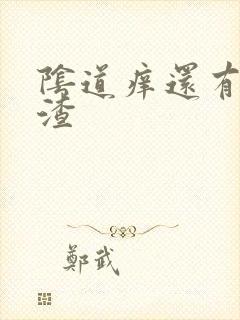 陰道痒還有
渣
鄭武